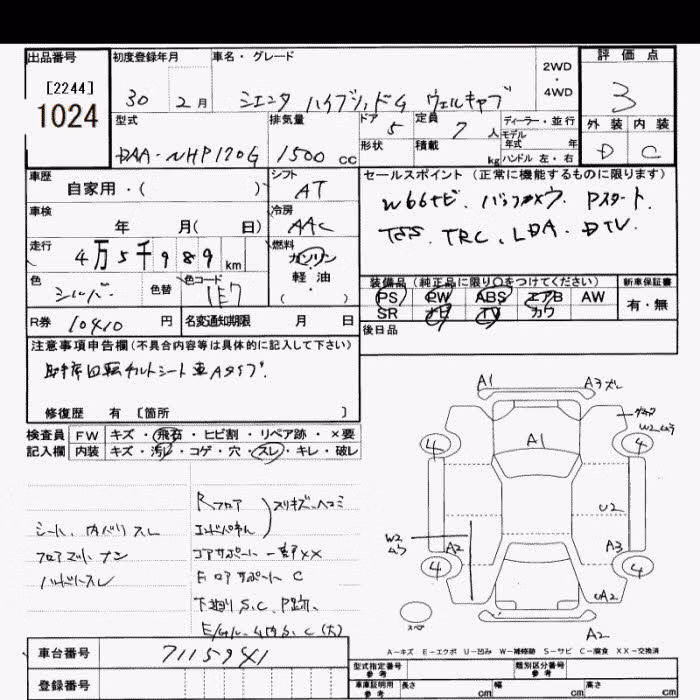 出品番号 初度登録年月 車名・グレード 2WD・4WD 評価点
[2244]
1024
30 2月 シエンタ ハイブリッドG ウェルキャブ 3
型式 排気量 ドア 5 定員 7 人 ディーラー・並行 外装 内装
DAA-NHP170G 1500 cc 形状 積載 kg モデル年式 年 ハンドル 左・右 D C
車歴 自家用・( ) シフト AT セールスポイント (正常に機能するものに限ります)
車検 年 月( 日) 冷房 AAC Pスタート.
TSS. TRC. LDA. DTV
走行 4万5千989 km 燃料 ガソリン・軽油・( )
色 シルバー 色替 色コード 1E7 装備品 (純正品に限り○をつけてください) 新車保証書
PS PW ABS エアB AW 有・無
SR ナビ TV カワ
R券 10410 円 名変通知期限 月 日 後日品
注意事項申告欄(不具合内容等は具体的に記入して下さい)
助手席回転チルトシート車Aタイプ
修復歴 有 [箇所 ]
検査員 FW キズ・飛石・ヒビ割・リペア跡・×要
記入欄 内装 キズ・汚レ・コゲ・穴・スレ・キレ・破レ
Rフロア スリキズ・ヘコミ
エンドパネル
シート、内バリスレ
フロアマットナシ
ハンドルスレ
コアサポート
コアサポート C
下廻りS.C.
A1 A3
W2
4 A1 4
U2
W2 A2 A3
4 4
A2
スペア A2
A-キズ E-エクボ U-凹み W-補修跡 S-サビ C-腐食 XX-交換済
車台番号 7115941
登録番号
型式指定番号 参考 類別区分番号 参考
車庫証明用 参考 長さ cm 幅 cm 高さ cm